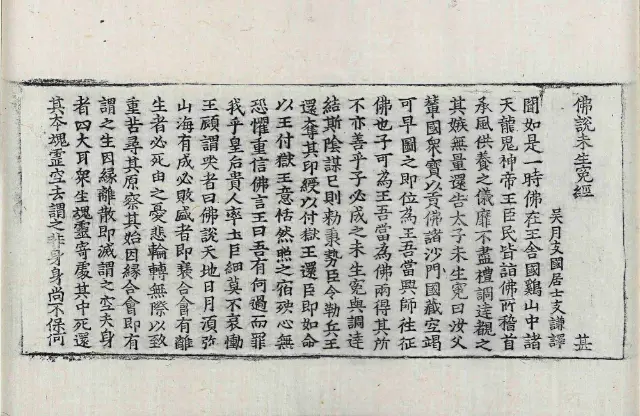 佛說未生冤經
甚
吳月支國居士支謙譯
聞如是一時佛在王舍國鷄山中諸
天龍鬼神帝王臣民皆詣佛所稽首
承風供養之儀靡不盡禮調達觀之
其嫉無量還告太子未生冤曰汝父
輦國衆寶以貢佛諸沙門國藏空竭
可早圖之即位為王吾當興師往征
佛也子可為王吾當為佛兩得其所
不亦善乎子必成之未生冤與調達
結斯陰謀已則勑秉勢臣令勒兵王
還奪其印綬以付獄王還臣即如命
以王付獄王意恬然照之宿殃心無
恐懼重信佛言王曰吾有何過而罪
我乎皇后貴人率土巨細莫不哀慟
王顧謂哭者曰佛說天地日月須弥
山海有成必敗盛者即衰合會有離
生者必死由之憂悲輪轉無際以致
重苦尋其原察其始因緣合會即有
謂之生因緣離散即滅謂之空夫身
者四大耳衆生魂靈寄處其中死還
其本魂靈空去謂之非身身尚不保何